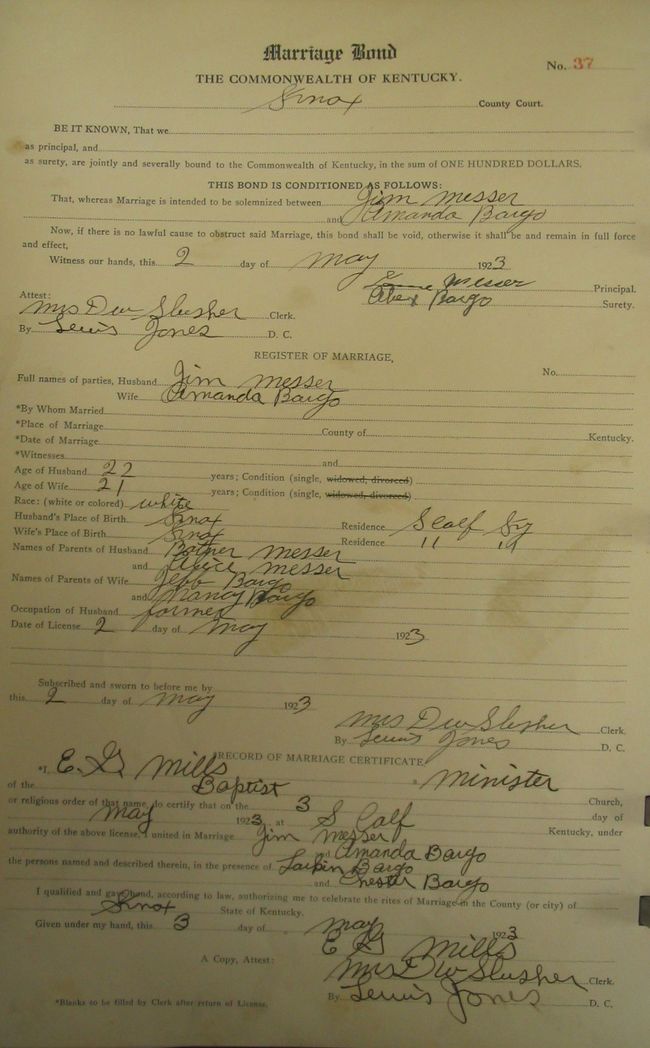 Marriage Bond
No. 37
THE COMMONWEALTH OF KENTUCKY.
Knox County Court.
BE IT KNOWN, That we
as principal, and
as surety, are jointly and severally bound to the Commonwealth of Kentucky, in the sum of ONE HUNDRED DOLLARS.
THIS BOND IS CONDITIONED AS FOLLOWS:
That, whereas Marriage is intended to be solemnized between Jim Messer
and Amanda Bargo
Now, if there is no lawful cause to obstruct said Marriage, this bond shall be void, otherwise it shall be and remain in full force
and effect,
Witness our hands, this 2 day of May 1923
Messer Principal.
Attest: Abex Bargo Surety.
Mrs Dw Slusher Clerk.
By Lewis Jones D. C.
REGISTER OF MARRIAGE,
No.
Full names of parties, Husband Jim Messer
Wife Amanda Bargo
*By Whom Married
*Place of Marriage County of Kentucky.
*Date of Marriage
*Witnesses and
Age of Husband 22 years; Condition (single, widowed, divorced)
Age of Wife 21 years; Condition (single, widowed, divorced)
Race: (white or colored) white
Husband's Place of Birth Knox Residence Scalf Ky
Wife's Place of Birth Knox Residence " "
Names of Parents of Husband Messer
and Alice Messer
Names of Parents of Wife Jeff Bargo
and Nancy Bargo
Occupation of Husband farmer
Date of License 2 day of May 1923
Subscribed and sworn to before me by
this 2 day of May 1923
Mrs Dw Slusher Clerk.
By Lewis Jones D. C.
RECORD OF MARRIAGE CERTIFICATE
*I, E. G. Mills a Minister
of the Baptist Church,
or religious order of that name, do certify that on the 3 day of
May 1923, at Scalf Kentucky, under
authority of the above license, I united in Marriage Jim Messer
and Amanda Bargo
the persons named and described therein, in the presence of Larkin Bargo
and Chester Bargo
I qualified and gave bond, according to law, authorizing me to celebrate the rites of Marriage in the County (or city) of
Knox State of Kentucky.
Given under my hand, this 3 day of May 1923
E G Mills
A Copy, Attest: Mrs Dw Slusher Clerk.
By Lewis Jones D. C.
*Blanks to be filled by Clerk after return of License.